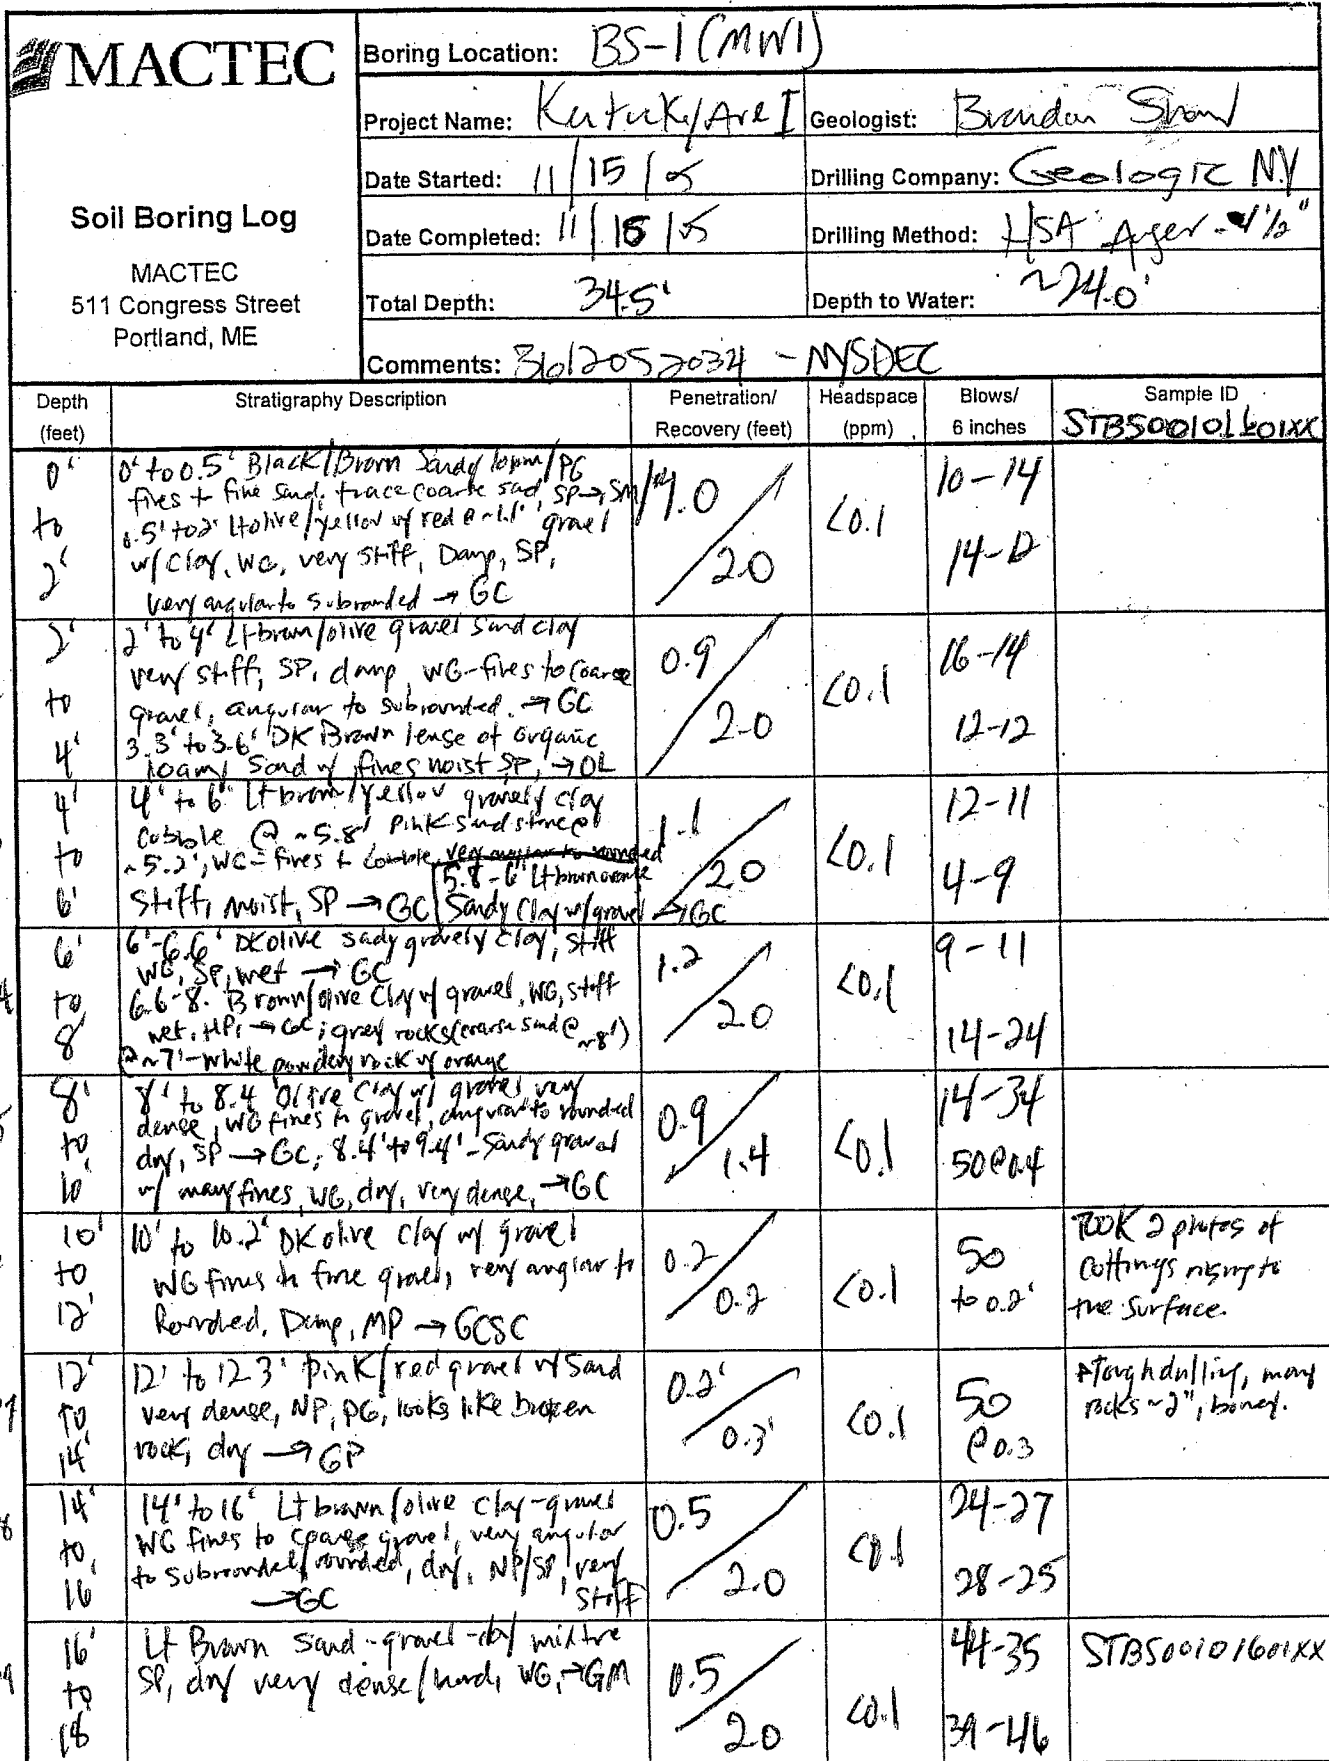 MACTEC
Boring Location: BS-1 (MW1)
Project Name:
Geologist: Brandan Shaw
Date Started: 11/15/05
Drilling Company: Geologic NY
Soil Boring Log
Date Completed: 11/15/05
Drilling Method: HSA Auger - 4½"
MACTEC
511 Congress Street
Portland, ME
Total Depth: 34.5'
Depth to Water: ~24.0'
Comments: 3612052034 - NYSDEC
Depth (feet)
Stratigraphy Description
Penetration/ Recovery (feet)
Headspace (ppm)
Blows/ 6 inches
Sample ID
STBS00101601XX
0' to 2'
0' to 0.5' Black/Brown Sandy loam/PG
fines to fine sand, trace coarse sad, SP→SM
0.5' to 2' lt olive/yellow w/ red @ ~1.1' gravel
w/ clay, WG, very stiff, Damp, SP,
very angular to subrounded → GC
1.0/2.0
<0.1
10-14
14-12
2' to 4'
2' to 4' Lt brown/olive gravel sand clay
very stiff, SP, damp, WG-fines to coarse
gravel, angular to subrounded. → GC
3.3' to 3.6' DK Brown lense of organic
loamy Sand w/ fines moist SP, → OL
0.9/2.0
<0.1
16-14
12-12
4' to 6'
4' to 6' Lt brown/yellow gravely clay
cobble @ ~5.8' Pink sandstone @
~5.2', WG-fines to cobble, very angular to rounded
5.8-6' Lt brown orange
Stiff, moist, SP → GC Sandy Clay w/ gravel → GC
1.1/2.0
<0.1
12-11
4-9
6' to 8'
6'-6.6' DK olive sady gravely clay, stiff
WG, SP, wet → GC
6.6-8. Brown/olive Clay w/ gravel, WG, stiff
wet, HP, → GC; grey rocks (coarse sand @ ~8')
@ ~7' - white powdery rock w/ orange
1.2/2.0
<0.1
9-11
14-24
8' to 10'
8' to 8.4 Olive Clay w/ gravel very
dense, WG fines to gravel, angular to rounded
dry, SP → GC; 8.4' to 9.4' - Sandy gravel
w/ many fines, WG, dry, very dense, → GC
0.9/1.4
<0.1
14-34
50@0.4
10' to 12'
10' to 10.2' DK olive clay w/ gravel
WG fines to fine gravel, very anglar to
Rounded, Damp, MP → GCSC
0.2/0.2
<0.1
50
to 0.2'
TOOK 2 photos of
Cuttings rising to
the surface.
12' to 14'
12' to 12.3' pink/red gravel w/ Sand
very dense, NP, PG, looks like broken
rock, dry → GP
0.2'/0.3'
<0.1
50
@ 0.3
Tough drilling, many
rocks ~2", boney.
14' to 16'
14' to 16' Lt brown/olive clay-gravel
WG fines to coarse gravel, very angular
to subrounded/rounded, dry, NP/SP, very
stiff
→ GC
0.5/2.0
<0.1
24-27
28-25
16' to 18
Lt Brown sand-gravel-clay mixture
SP, dry very dense/hard, WG, → GM
0.5/2.0
<0.1
44-35
39-46
STBS00101601XX